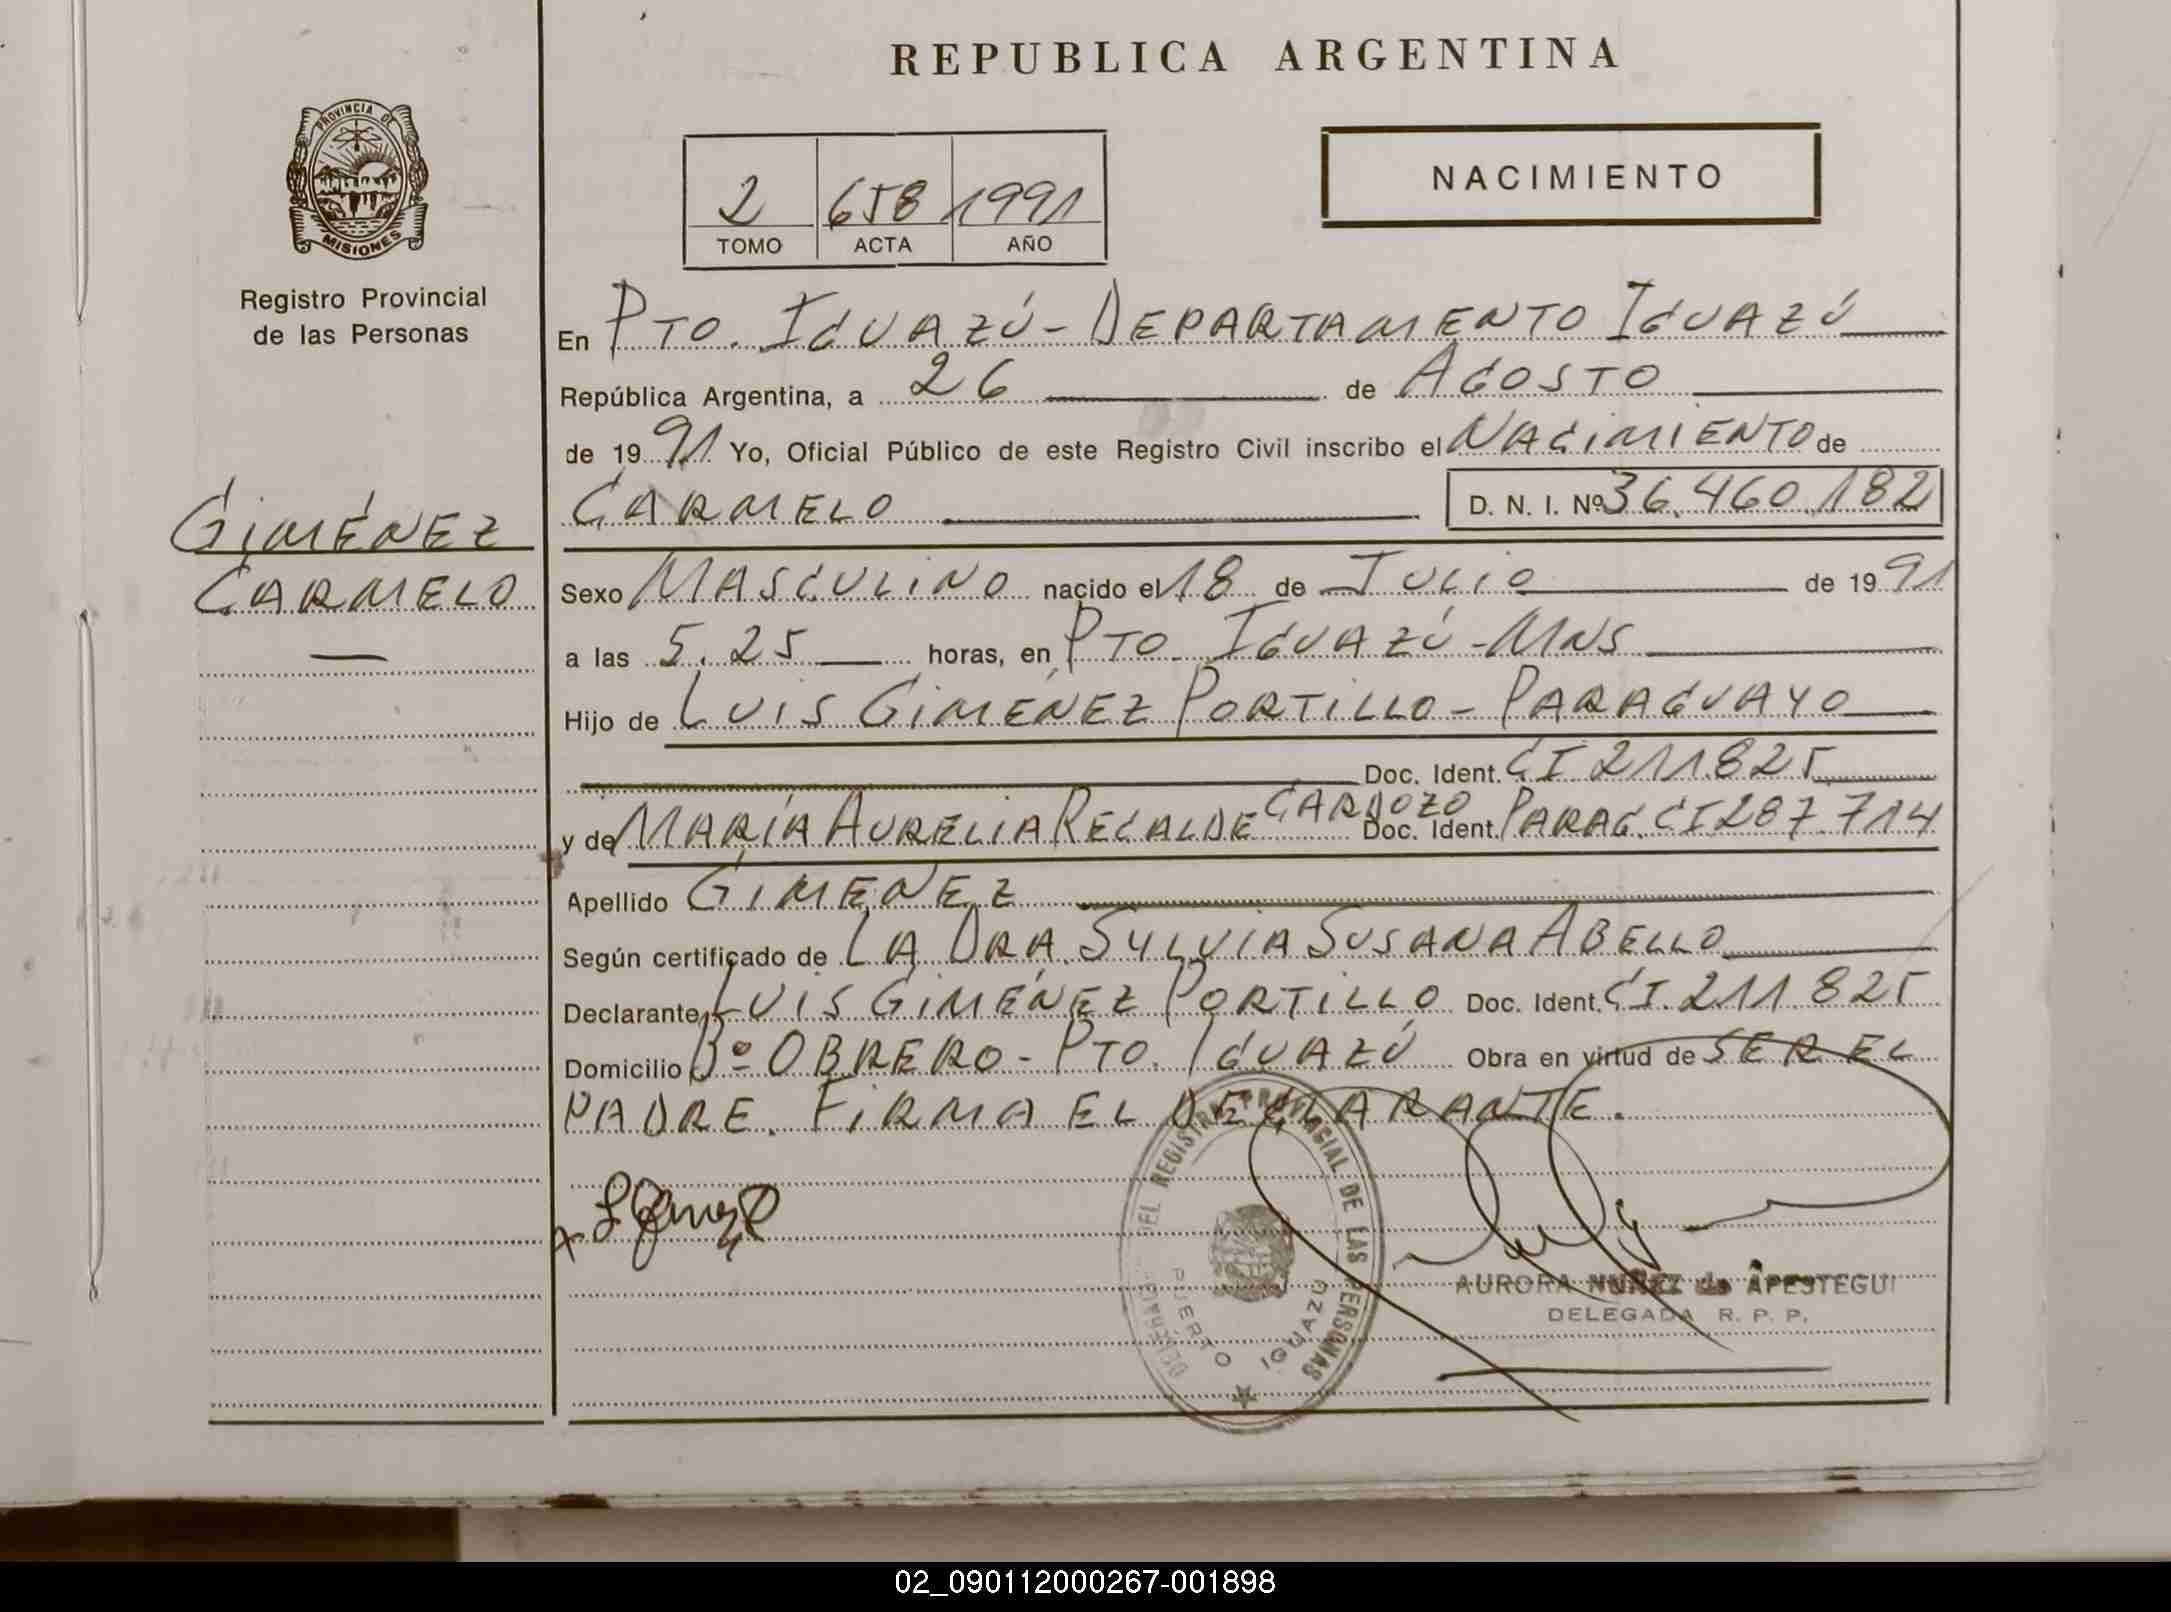 REPUBLICA ARGENTINA
PROVINCIA DE
MISIONES
Registro Provincial
de las Personas
2 658 1991
TOMO ACTA AÑO
NACIMIENTO
En PTO. IGUAZÚ - DEPARTAMENTO IGUAZÚ
República Argentina, a 26 de AGOSTO
de 1991 Yo, Oficial Público de este Registro Civil inscribo el NACIMIENTO de
CARMELO D. N. I. Nº 36.460.182
GIMÉNEZ
CARMELO
Sexo MASCULINO nacido el 18 de JULIO de 1991
a las 5.25 horas, en PTO IGUAZÚ - MNS
Hijo de LUIS GIMÉNEZ PORTILLO - PARAGUAYO
Doc. Ident. CI 211.825
y de MARÍA AURELIA RECALDE CARDOZO Doc. Ident. PARAG. CI 287.714
Apellido GIMENEZ
Según certificado de LA DRA. SYLVIA SUSANA ABELLO
Declarante LUIS GIMÉNEZ PORTILLO Doc. Ident. CI. 211.825
Domicilio Bº OBRERO - PTO. IGUAZÚ Obra en virtud de SER EL
PADRE. FIRMA EL DECLARANTE.
DEL REGISTRO PROVINCIAL DE LAS PERSONAS
PUERTO IGUAZÚ
AURORA NUÑEZ de APESTEGUI
DELEGADA R. P. P.
02_090112000267-001898